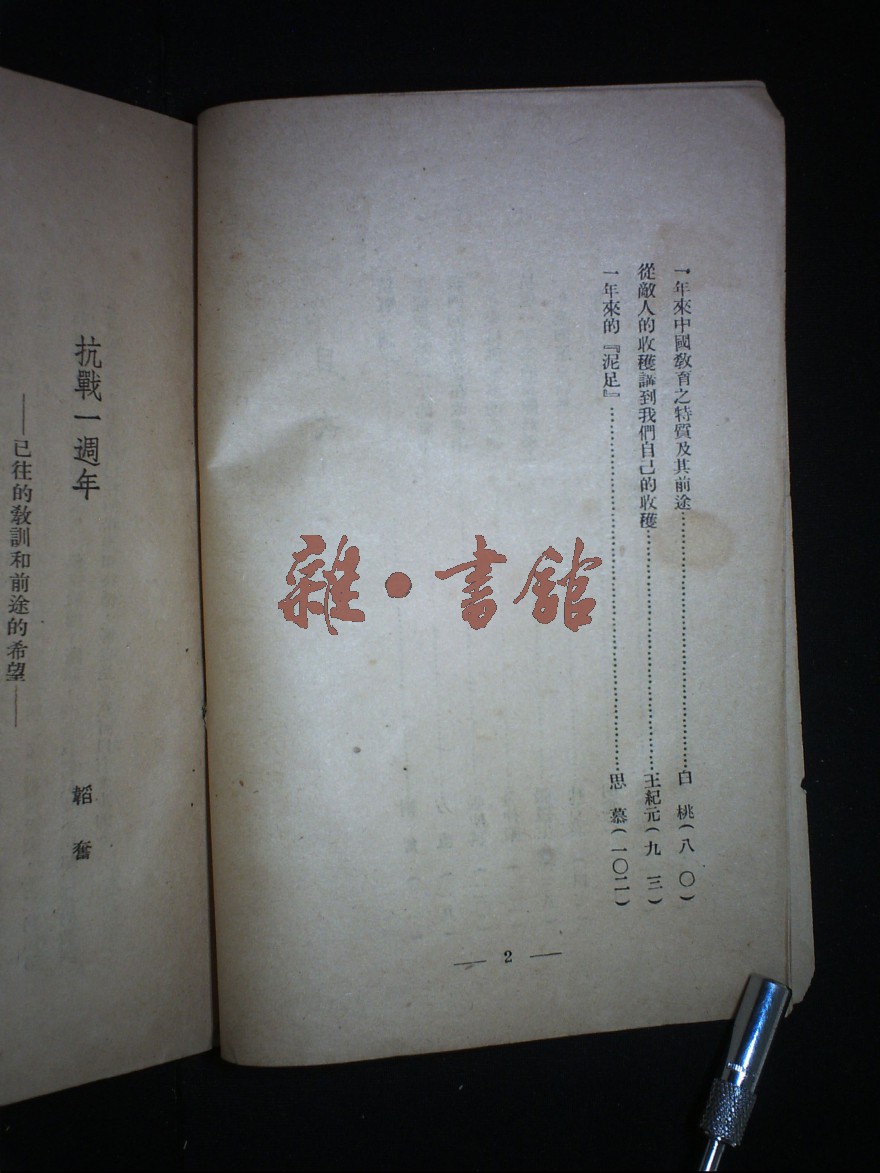 一年來中國敎育之特質及其前途……白　桃(八　〇)
從敵人的收穫講到我們自己的收穫……王紀元(九　三)
一年來的『泥足』……思　慕(一〇二)
— 2 —
抗戰一週年
——已往的敎訓和前途的希望——
韜　奮
雜·書館